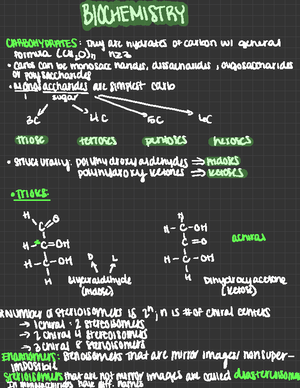 BIOCHEMISTRY
CARBOHYDRATES: They are hydrates of carbon w/ general
formula (CH2O)n n≥3
• Carbs can be monosaccharides, disaccharides, oligosaccharides
or polysaccharides
• Monosaccharides are simplest carb
1 sugar
3C 4C 5C 6C
triose tetroses pentoses hexoses
• Structurally: polyhydroxyaldehydes ⇒ aldoses
polyhydroxy ketones ⇒ ketoses
• TRIOSES
H
C=O
H-C-OH
H-C-OH
H
D L
Glyceraldehyde
(aldose)
H
H-C-OH
C=O
H-C-OH
H
achiral
Dihydroxyacetone
(ketose)
*Number of stereoisomers is 2ⁿ, n is # of chiral centers
→ 1 chiral · 2 stereoisomers
→ 2 chiral 4 stereoisomers
→ 3 chiral 8 stereoisomers
Enantiomers: stereoisomers that are mirror images nonsuper-
imposible
Stereoisomers that are not mirror images are called diastereomers
have diff names